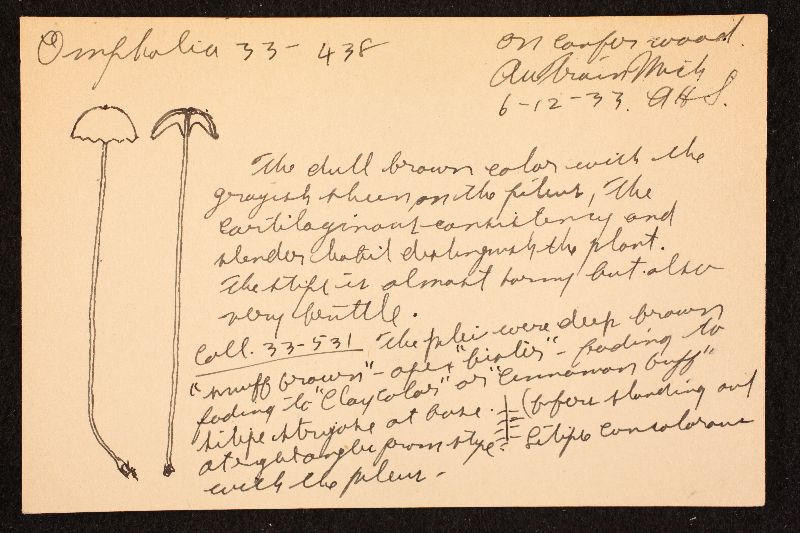 Omphalia 33-438
on conifer wood.
AuTrain Mich
6-12-33. AHS.
The dull brown color with the
grayish sheen on the pileus, the
cartilaginous consistency and
slender habit distinguish the plant.
The stipe is almost horny but also
very brittle.
Coll. 33-531 The pilei were deep brown
"snuff brown" - apex "bister" - fading to
fading to "Clay color" or "Cinnamon buff"
stipe strigose at base. (fibers standing out
at right angles from stipe. Stipe concolorous
with the pileus -